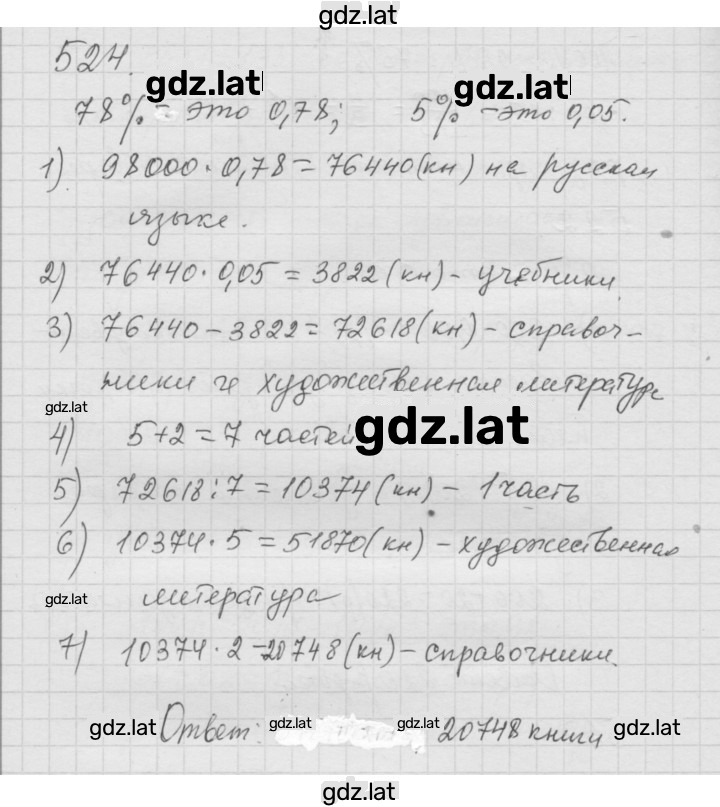 gdz.lat
524.
gdz.lat gdz.lat
78% - это 0,78; 5% - это 0,05.
1) 98000 · 0,78 = 76440 (кн) на русском
языке.
2) 76440 · 0,05 = 3822 (кн) - учебники
3) 76440 - 3822 = 72618 (кн) - справоч-
ники и художественная литература
gdz.lat
4) 5+2 = 7 частей gdz.lat
5) 72618 : 7 = 10374 (кн) - 1 часть
6) 10374 · 5 = 51870 (кн) - художественная
gdz.lat литература
7) 10374 · 2 - 20748 (кн) - справочники.
gdz.lat Ответ: gdz.lat gdz.lat 20748 книги gdz.lat
gdz.lat